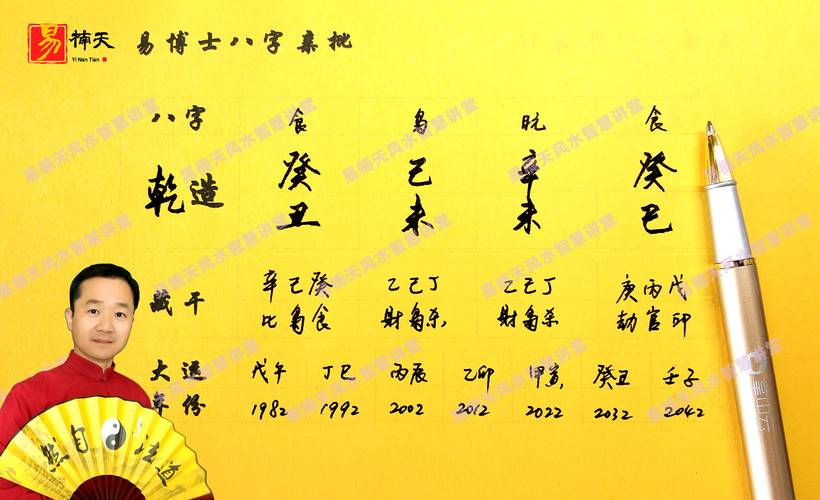 易 楠天 易博士八字亲批
Yi Nan Tian
八字 食 枭 日元 食
乾造 癸 己 辛 癸
丑 未 未 巳
藏干 辛己癸 乙己丁 乙己丁 庚丙戊
比枭食 财枭杀 财枭杀 劫官印
大运 戊午 丁巳 丙辰 乙卯 甲寅 癸丑 壬子
年份 1982 1992 2002 2012 2022 2032 2042
易楠天风水智慧讲堂
然自法道